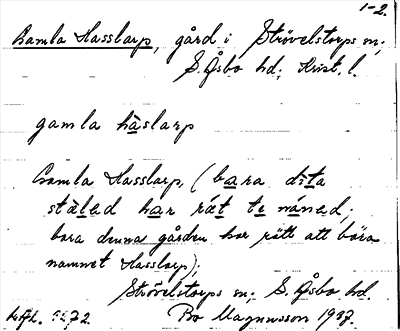 1-2.
Gamla Hasslarp, gård i Strövelstorps sn;
S. Åsbo hd; Krist. l.
gamla hàslarp
Gamla Hasslarp, (bara dita
stæled har ræt te nåned;
bara denna gården har rätt att bära
namnet Hasslarp);
Strövelstorps sn; S. Åsbo hd.
Bo Magnusson 1937.